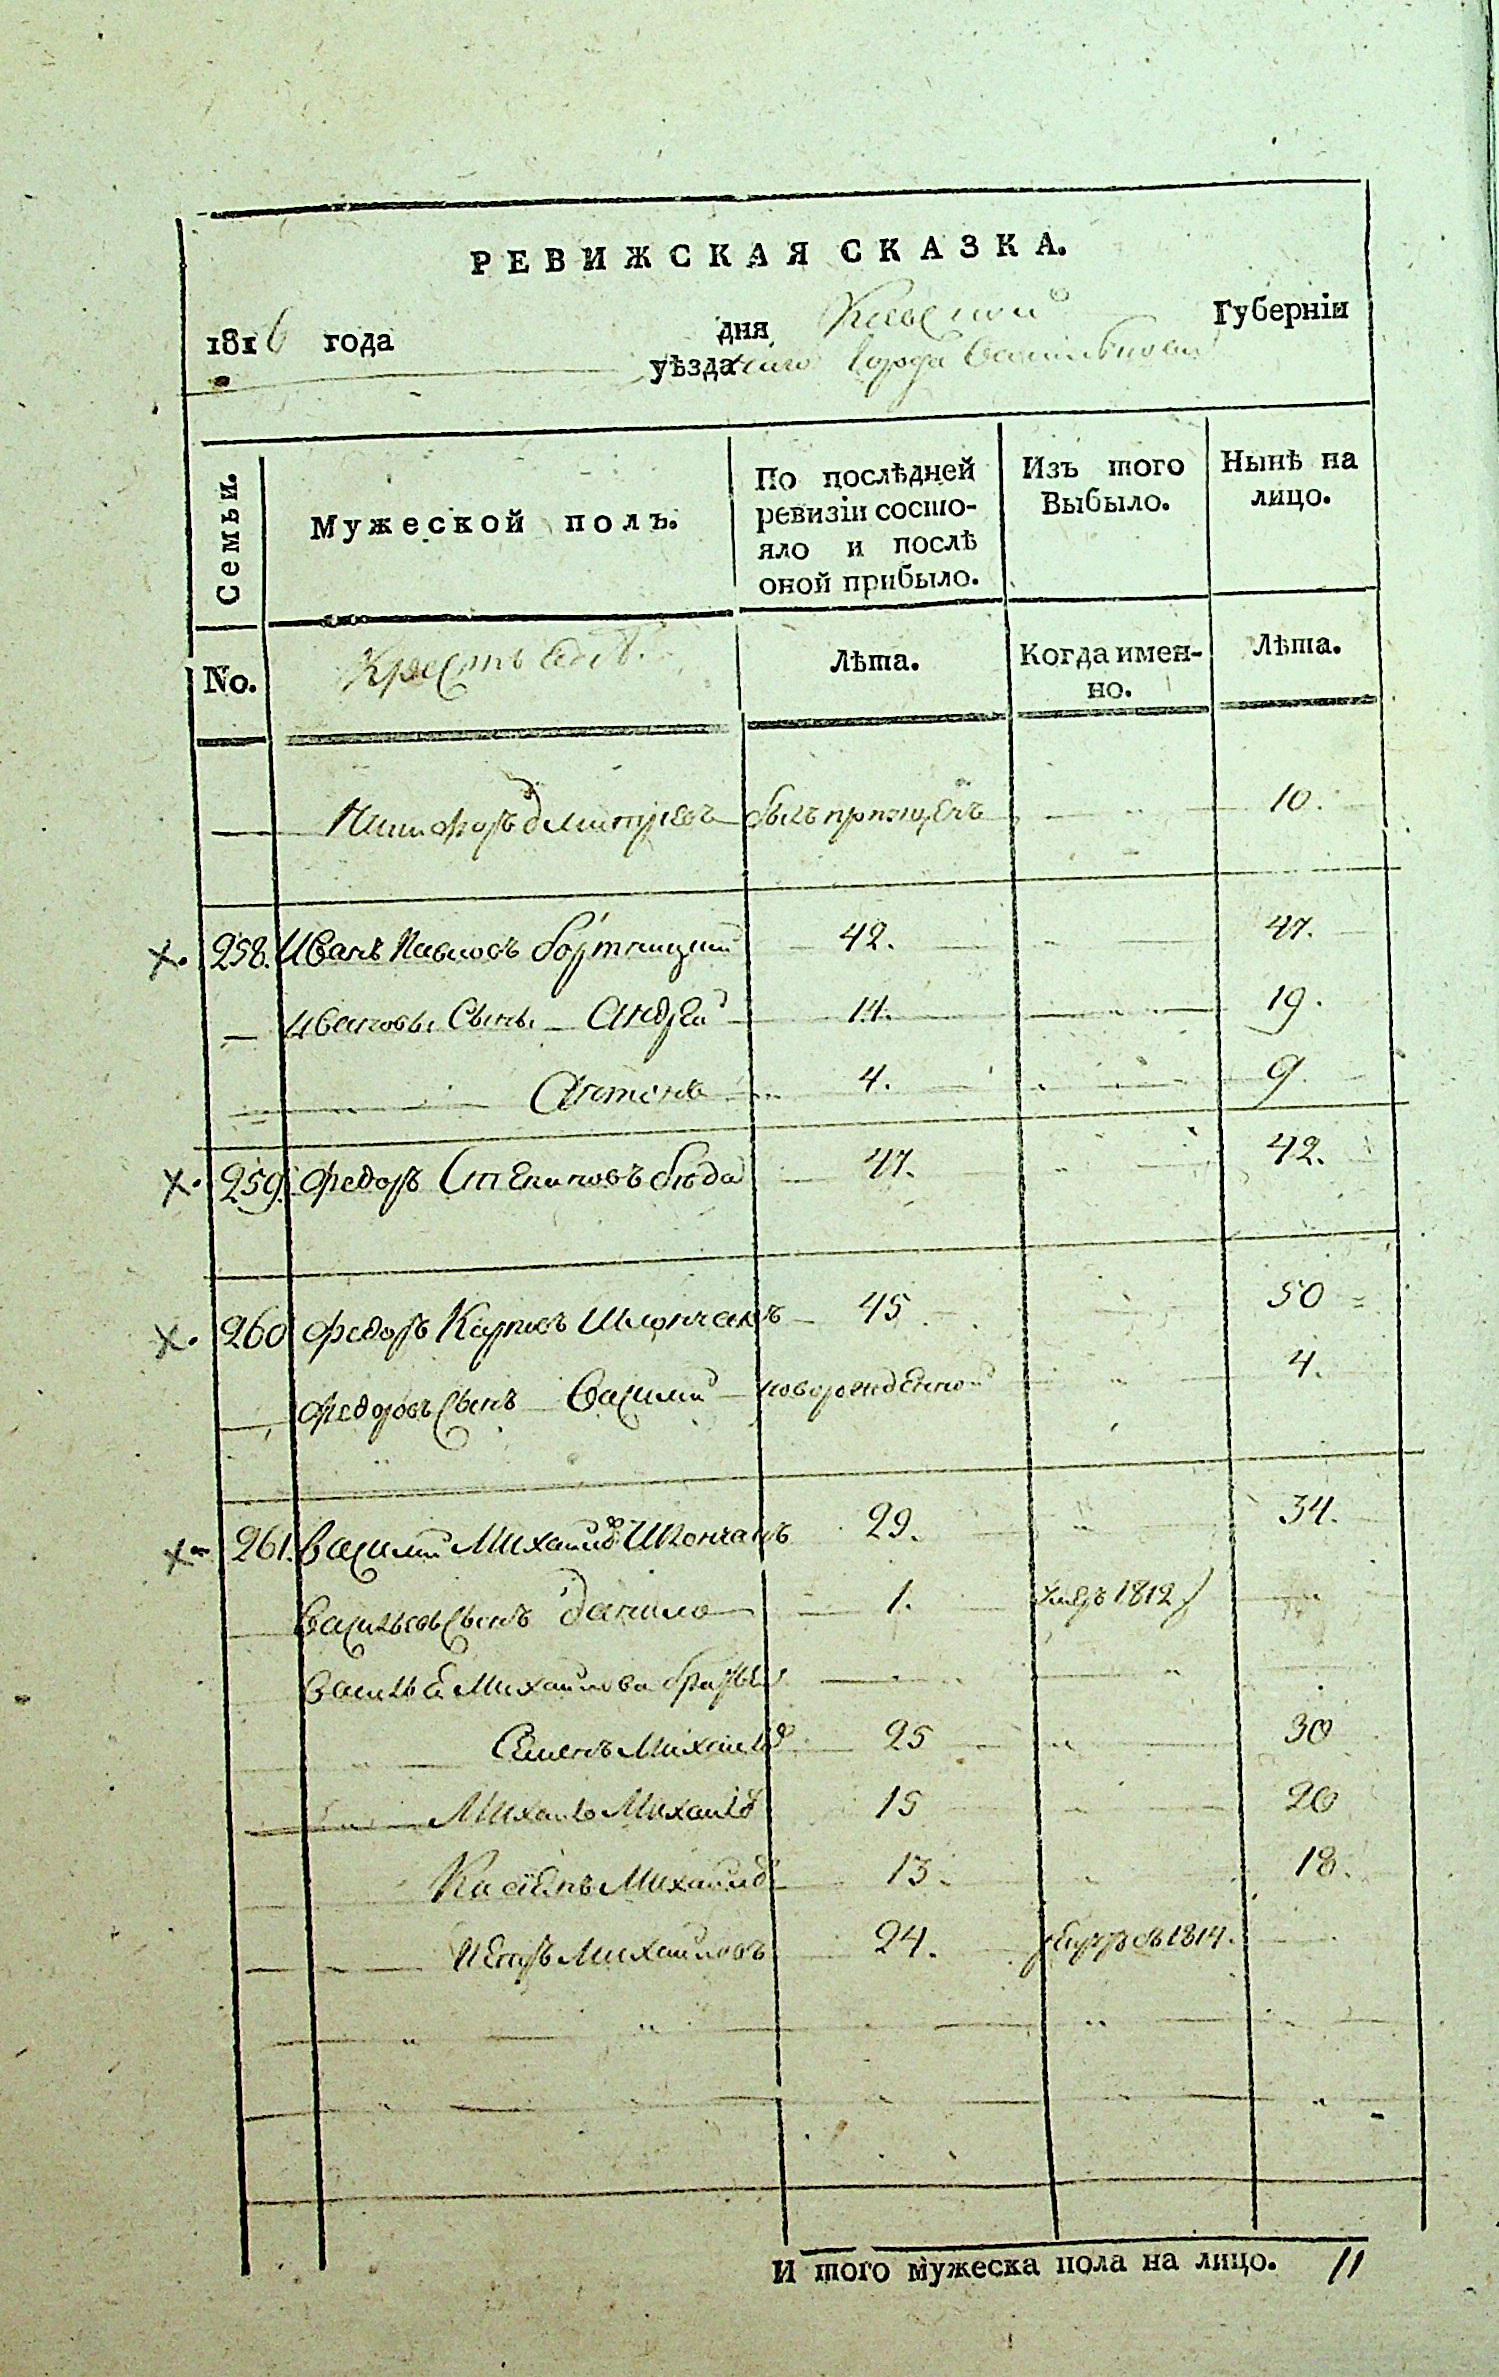 РЕВИЖСКАЯ СКАЗКА.
1816 года дня Киевской Губерніи
уѣзда города Василькова
Семьи. Мужеской полъ. По послѣдней ревизіи состо-яло и послѣ оной прибыло. Изъ того Выбыло. Нынѣ на лицо.
No. Лѣта. Когда имен-но. Лѣта.
Никифоръ Дмитріевъ былъ пропущенъ 10.
х. 258. Иванъ Павловъ Бортницкій 42. 47.
Ивановы Сыны Андрей 14. 19.
Антонъ 4. 9
х. 259. Федоръ Степановъ Бѣда 47. 42.
х. 260 Федоръ Карповъ Шпончакъ 45 50
Федоровъ Сынъ Василий новорожденной 4.
х 261. Василий Михайловъ Шпончакъ 29. 34.
Васильевъ Сынъ Данило 1. умеръ 1812
Василья Михайлова братья
Семенъ Михайловъ 25 30
Михайло Михайловъ 15 20
Касіянъ Михайловъ 13. 18.
Петръ Михайловъ 24. рекрутъ въ 1814.
И того мужеска пола на лицо. 11